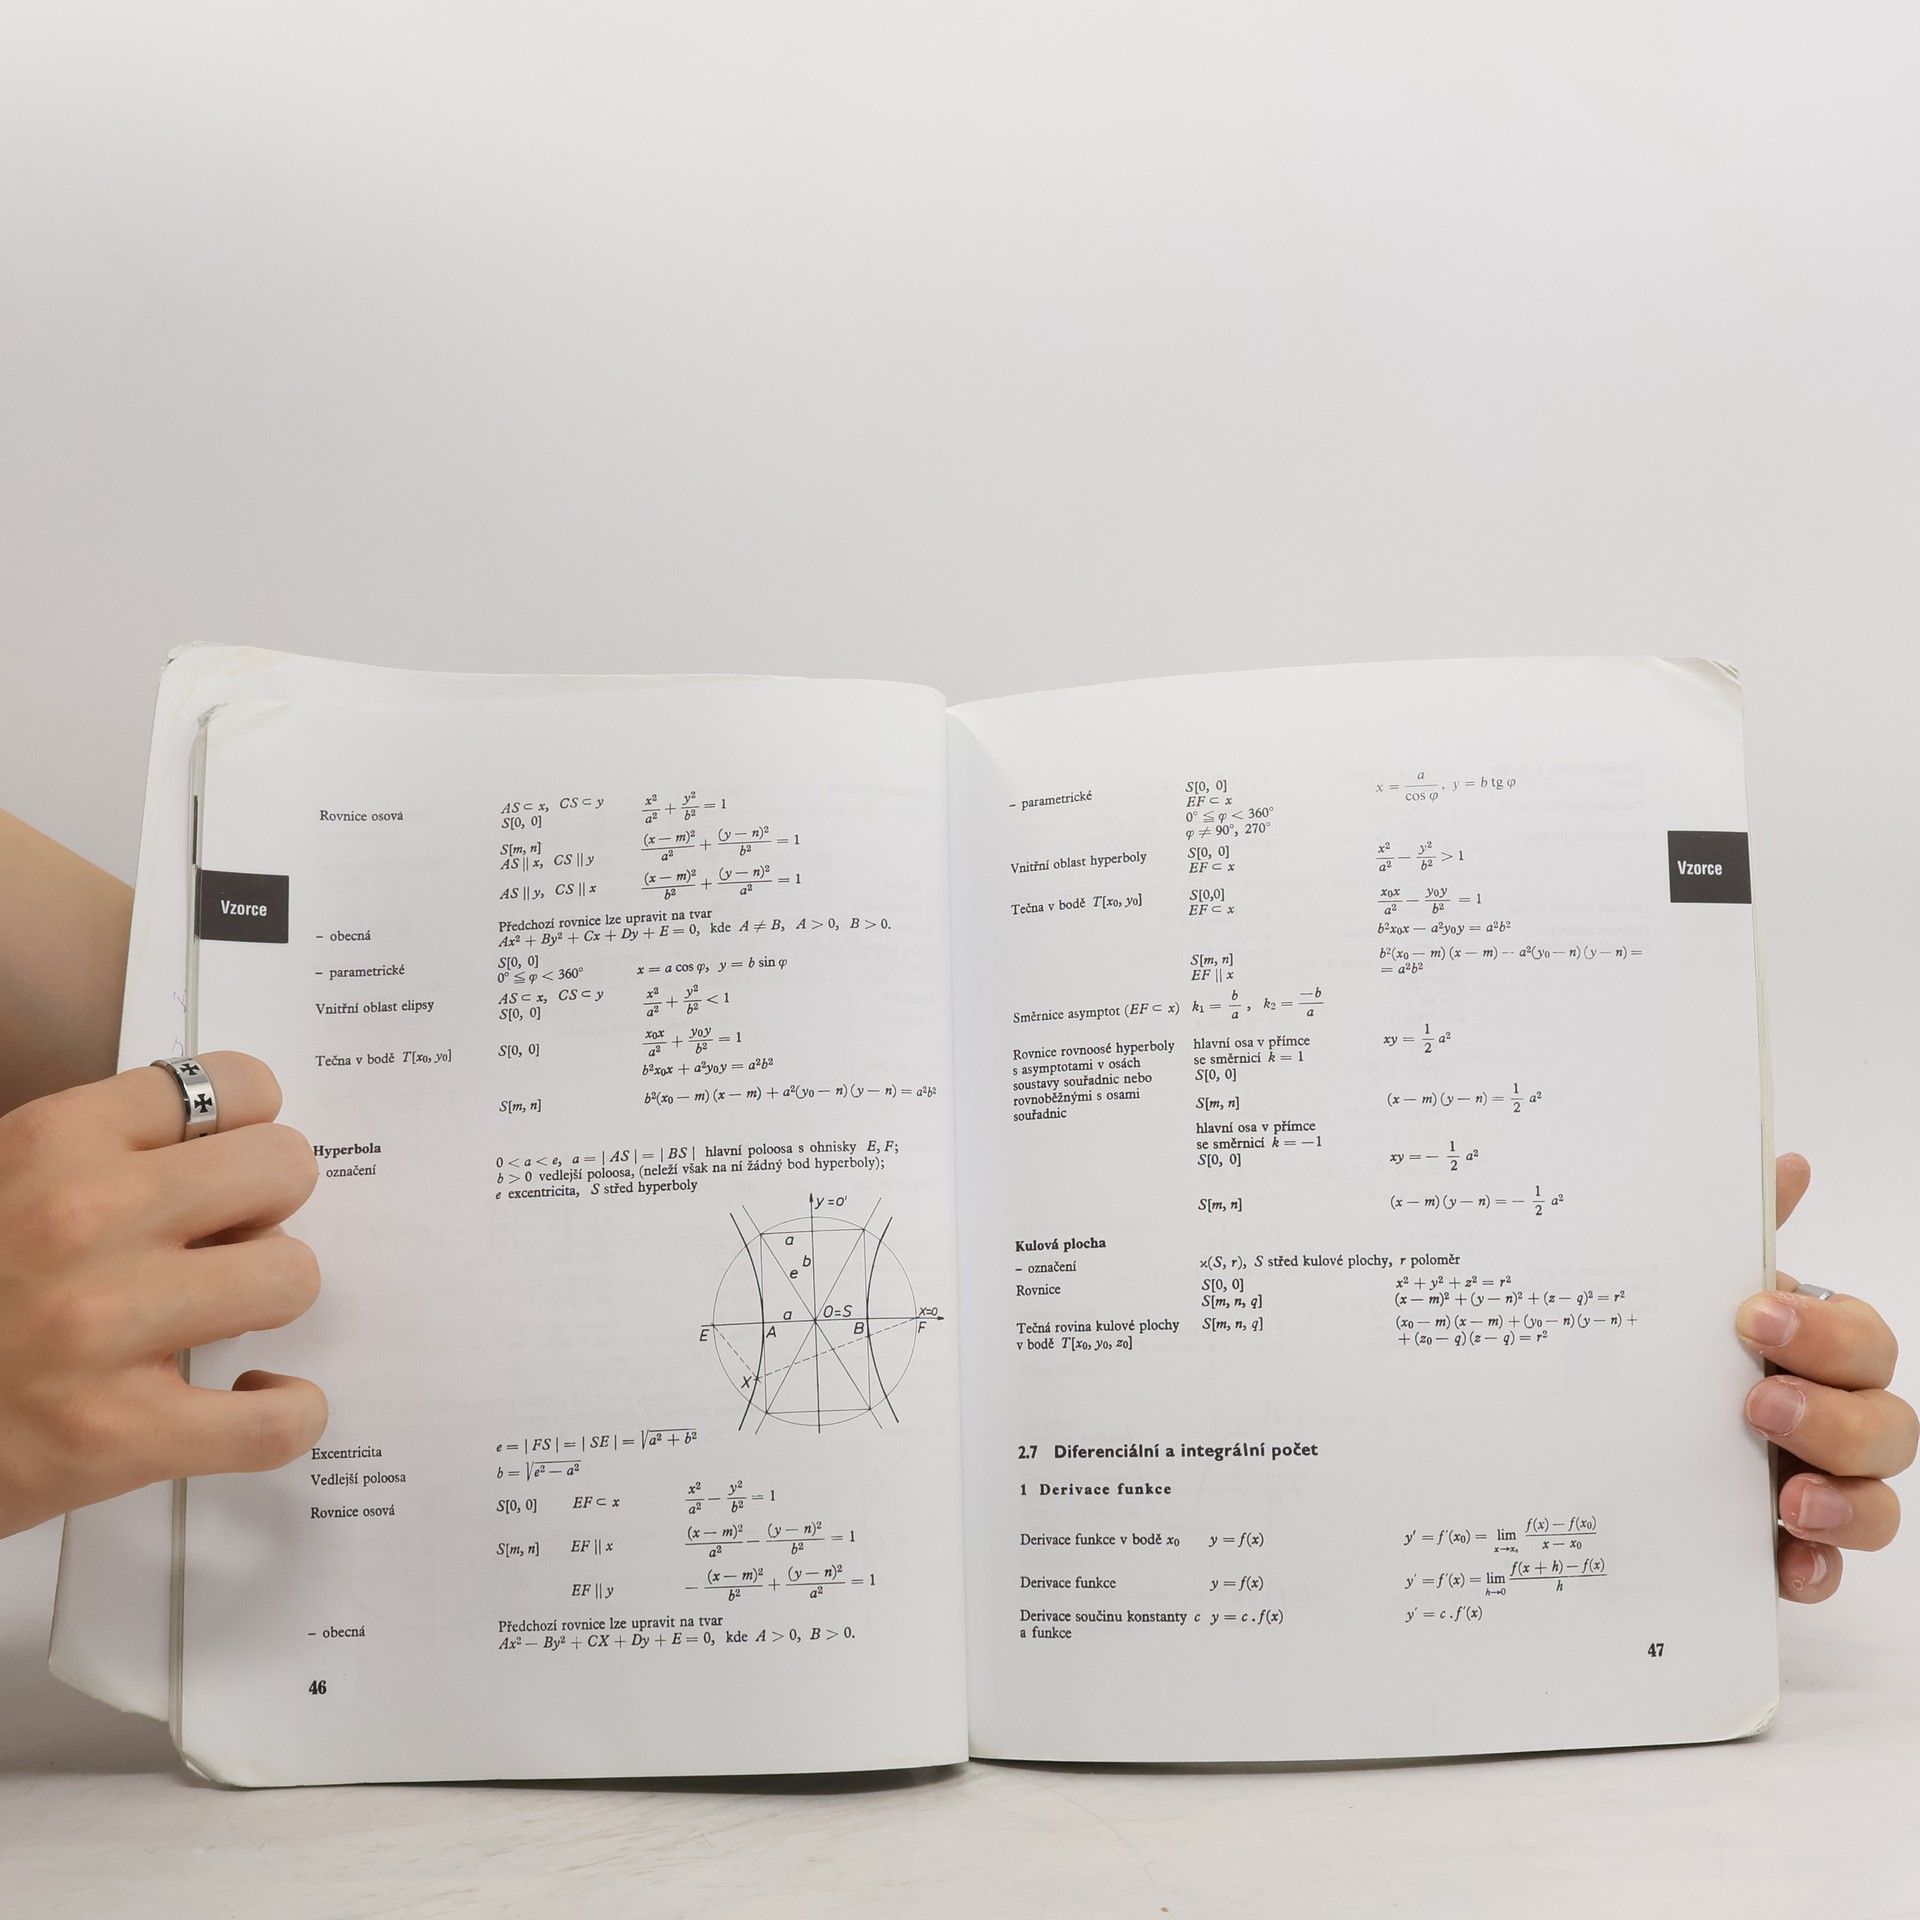 Vzorce
Rovnice osová AS ⊂ x, CS ⊂ y x²/a² + y²/b² = 1
S[0, 0]
S[m, n] (x − m)²/a² + (y − n)²/b² = 1
AS || x, CS || y
AS || y, CS || x (x − m)²/b² + (y − n)²/a² = 1
Předchozí rovnice lze upravit na tvar
– obecná Ax² + By² + Cx + Dy + E = 0, kde A ≠ B, A > 0, B > 0.
– parametrické S[0, 0]
0° ≦ φ < 360° x = a cos φ, y = b sin φ
Vnitřní oblast elipsy AS ⊂ x, CS ⊂ y x²/a² + y²/b² < 1
S[0, 0]
Tečna v bodě T[x₀, y₀] S[0, 0] x₀x/a² + y₀y/b² = 1
b²x₀x + a²y₀y = a²b²
S[m, n] b²(x₀ − m) (x − m) + a²(y₀ − n) (y − n) = a²b²
Hyperbola
označení 0 < a < e, a = | AS | = | BS | hlavní poloosa s ohnisky E, F;
b > 0 vedlejší poloosa, (neleží však na ní žádný bod hyperboly);
e excentricita, S střed hyperboly
y = o'
a
b
e
a O=S x=o
E A B F
X
Excentricita e = | FS | = | SE | = √(a² + b²)
Vedlejší poloosa b = √(e² − a²)
Rovnice osová S[0, 0] EF ⊂ x x²/a² − y²/b² = 1
S[m, n] EF || x (x − m)²/a² − (y − n)²/b² = 1
EF || y − (x − m)²/b² + (y − n)²/a² = 1
Předchozí rovnice lze upravit na tvar
– obecná Ax² − By² + CX + Dy + E = 0, kde A > 0, B > 0.
46
Vzorce
– parametrické S[0, 0] x = a/cos φ, y = b tg φ
EF ⊂ x
0° ≦ φ < 360°
φ ≠ 90°, 270°
Vnitřní oblast hyperboly S[0, 0] x²/a² − y²/b² > 1
EF ⊂ x
Tečna v bodě T[x₀, y₀] S[0,0] x₀x/a² − y₀y/b² = 1
EF ⊂ x
b²x₀x − a²y₀y = a²b²
S[m, n] b²(x₀ − m) (x − m) − a²(y₀ − n) (y − n) =
EF || x = a²b²
Směrnice asymptot (EF ⊂ x) k₁ = b/a, k₂ = −b/a
Rovnice rovnoosé hyperboly hlavní osa v přímce xy = 1/2 a²
s asymptotami v osách se směrnicí k = 1
soustavy souřadnic nebo S[0, 0]
rovnoběžnými s osami S[m, n] (x − m) (y − n) = 1/2 a²
souřadnic
hlavní osa v přímce
se směrnicí k = −1
S[0, 0] xy = − 1/2 a²
S[m, n] (x − m) (y − n) = − 1/2 a²
Kulová plocha
– označení ϰ(S, r), S střed kulové plochy, r poloměr
Rovnice S[0, 0] x² + y² + z² = r²
S[m, n, q] (x − m)² + (y − n)² + (z − q)² = r²
Tečná rovina kulové plochy S[m, n, q] (x₀ − m) (x − m) + (y₀ − n) (y − n) +
v bodě T[x₀, y₀, z₀] + (z₀ − q) (z − q) = r²
2.7 Diferenciální a integrální počet
1 Derivace funkce
Derivace funkce v bodě x₀ y = f(x) y' = f'(x₀) = lim x→x₀ (f(x) − f(x₀))/(x − x₀)
Derivace funkce y = f(x) y' = f'(x) = lim h→0 (f(x + h) − f(x))/h
Derivace součinu konstanty c y = c . f(x) y' = c . f'(x)
a funkce
47